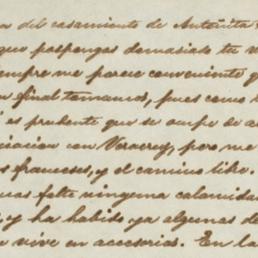 a del casamiento de Antoñita
que pospongas demasiado tu v
empre me parece conveniente q
a final tomamos, pues como
es prudente que se ocupe de a
ciacion con Veracruz, pero me
s franceses, y el camino libre.
uas falte ninguna calamidad
, y ha habido ya algunas de
a vive en accesorias. En la